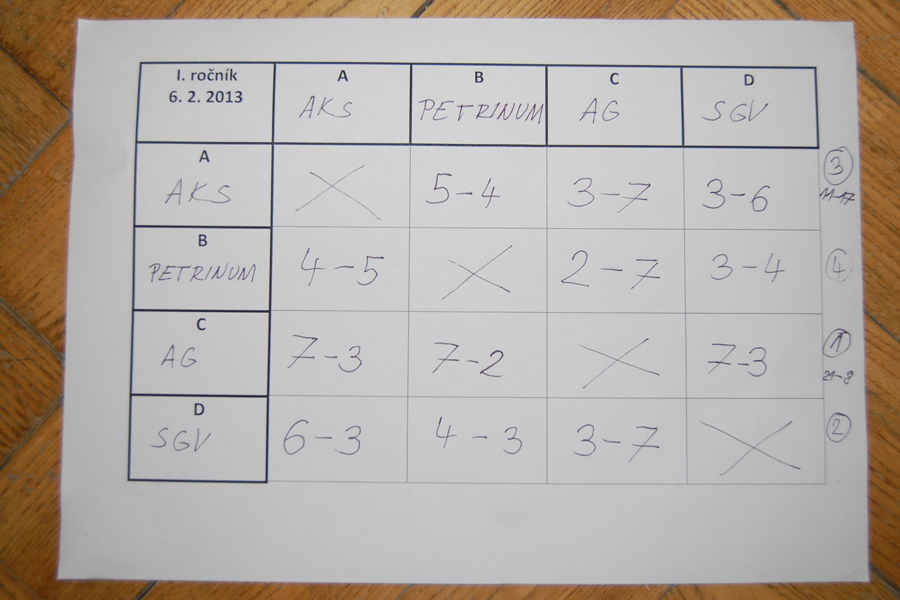 I. ročník
6. 2. 2013
A
AKS
B
PETRINUM
C
AG
D
SGV
A
AKS
5-4
3-7
3-6
3
11-17
B
PETRINUM
4-5
2-7
3-4
4
C
AG
7-3
7-2
7-3
1
21-8
D
SGV
6-3
4-3
3-7
2